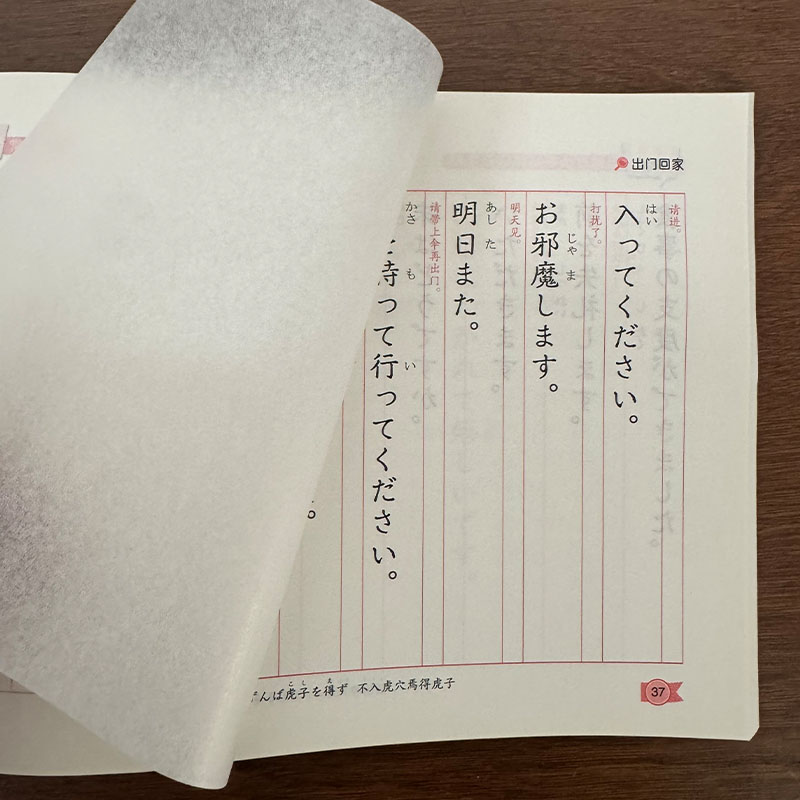 出门回家
请进。
はい
入ってください。
打扰了。
じゃ ま
お邪魔します。
明天见。
あし た
明日また。
请带上伞再出门。
かさ も い
持って行ってください。
。
こ し え
んば虎子を得ず 不入虎穴焉得虎子
37